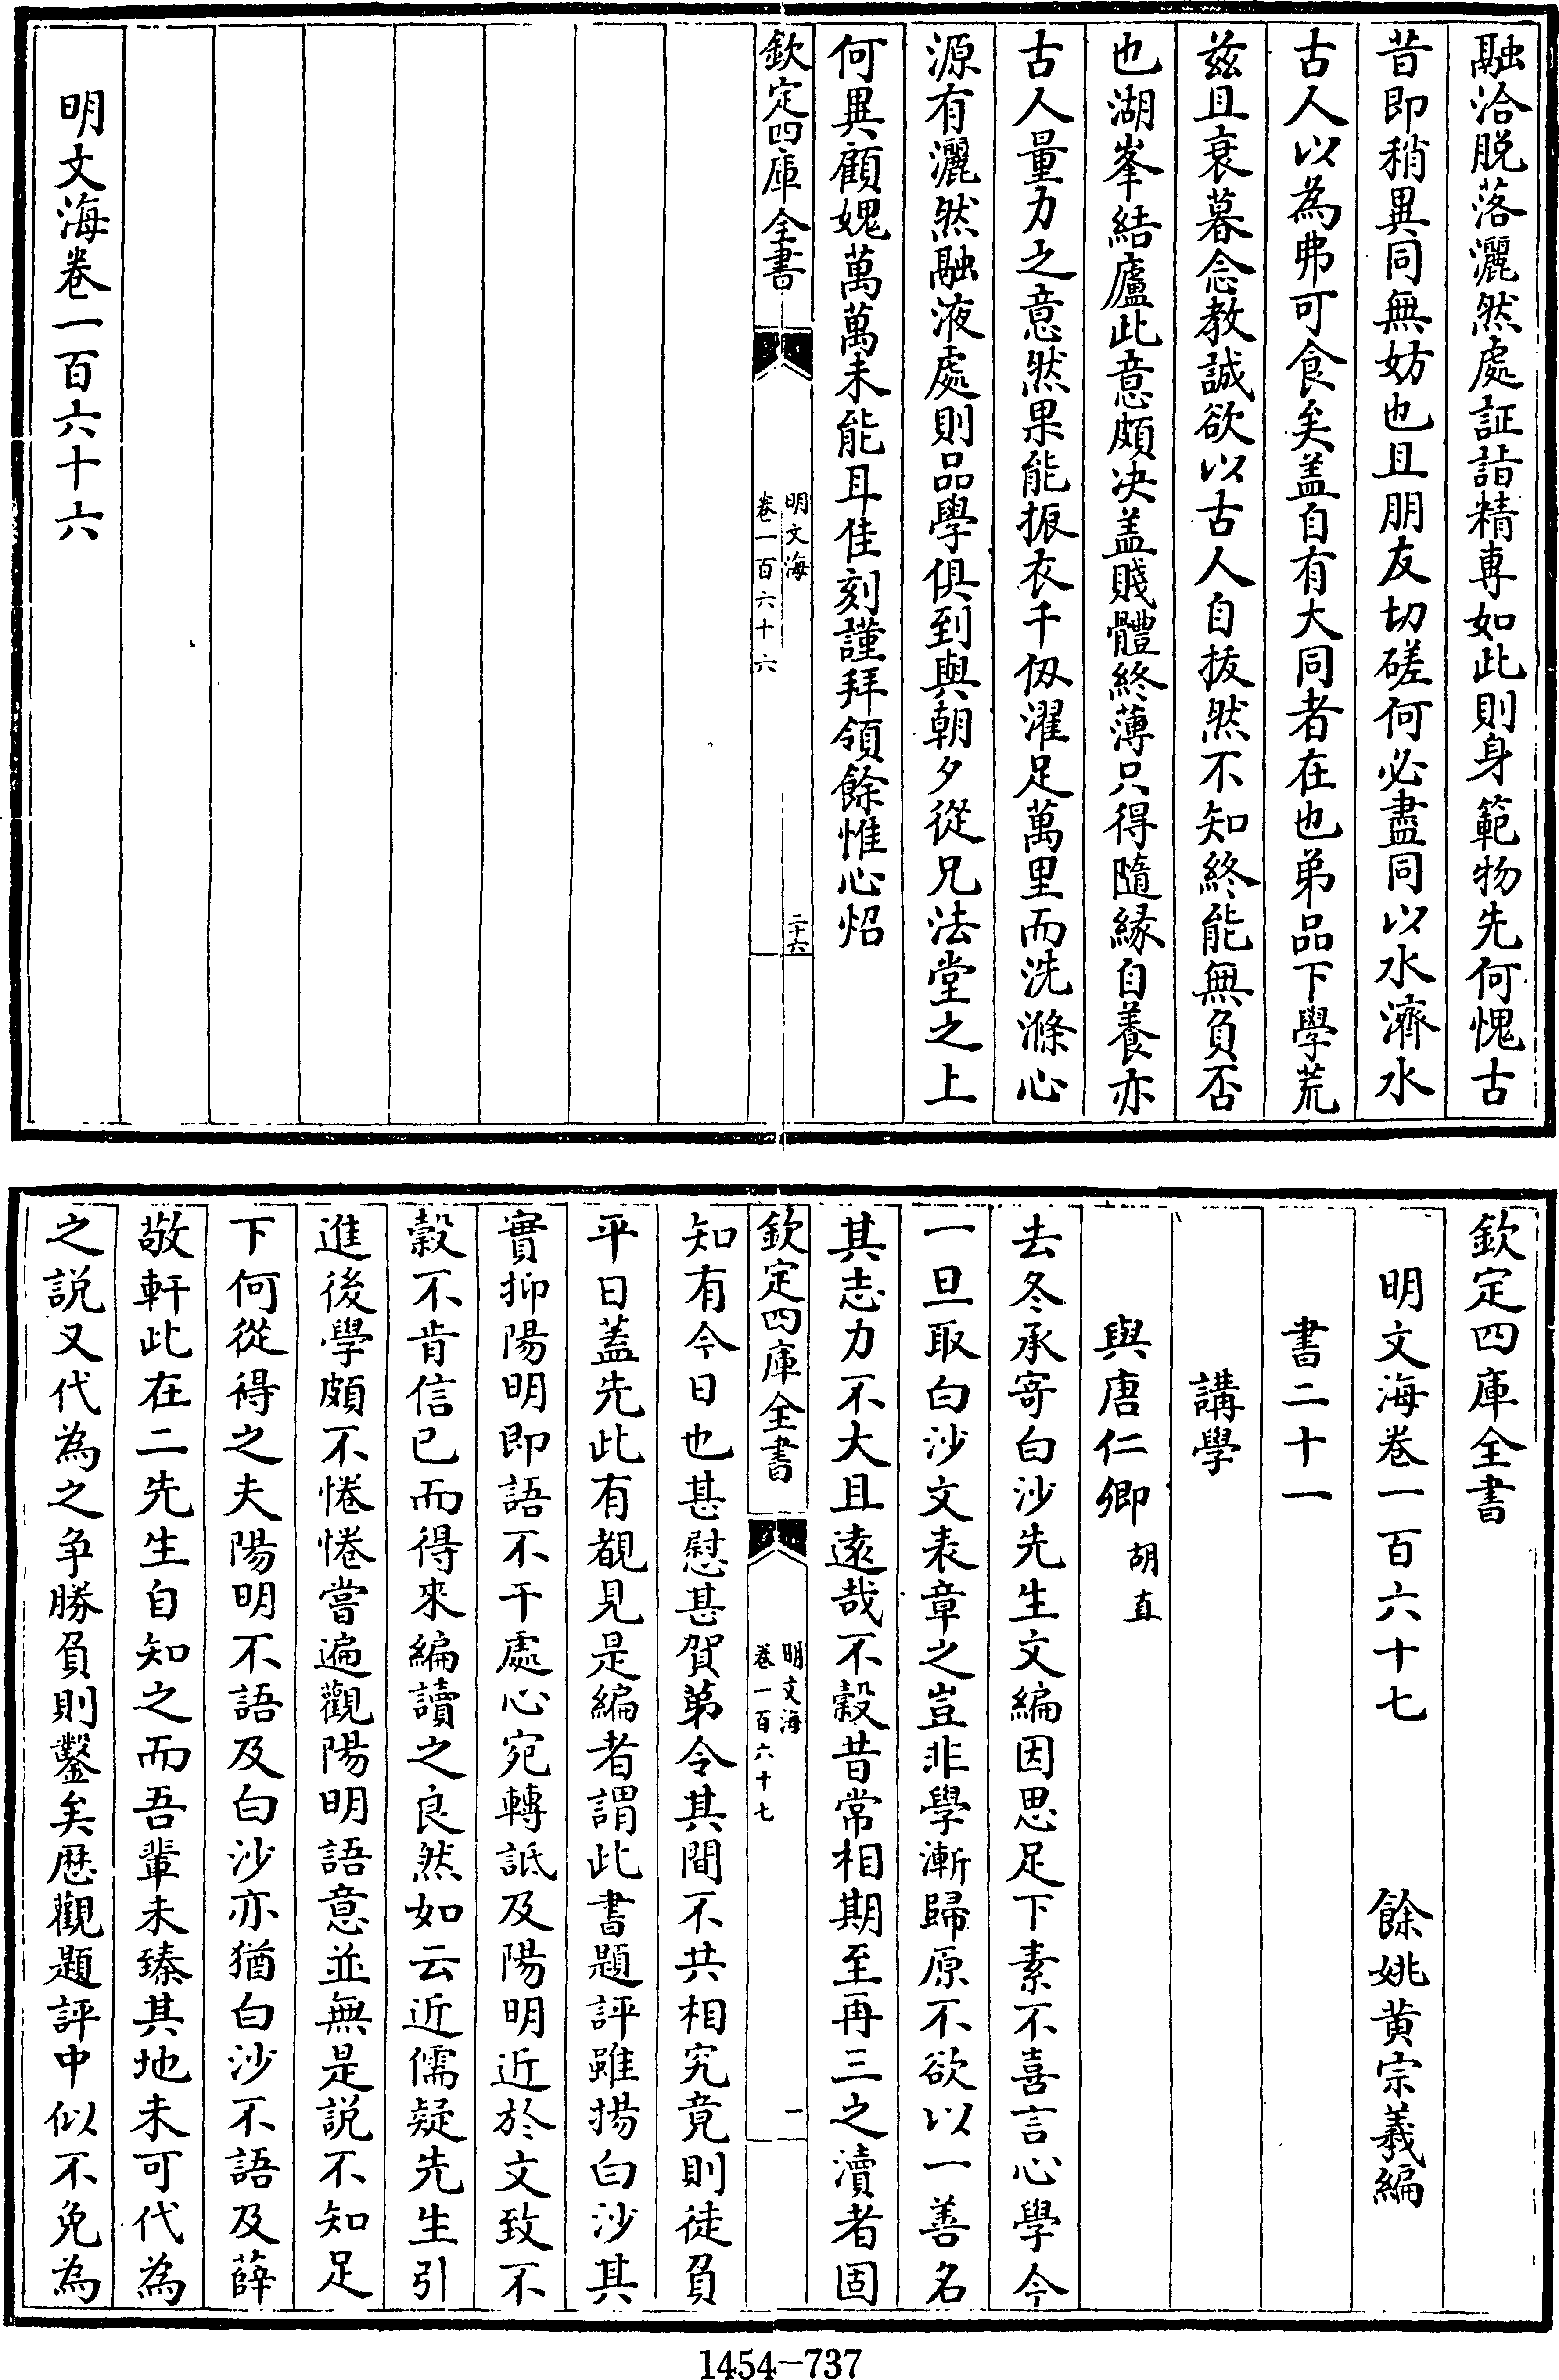 融洽脱落灑然處証詣精專如此則身範物先何愧古
昔即稍異同無妨也且朋友切磋何必盡同以水濟水
古人以為弗可食矣盖自有大同者在也弟品下學荒
兹且衰暮念教誠欲以古人自拔然不知終能無負否
也湖峯結廬此意頗决盖賤體終薄只得隨緣自養亦
古人量力之意然果能振衣千仭濯足萬里而洗滌心
源有灑然融液處則品學俱到與朝夕從兄法堂之上
何異顧媿萬萬未能耳佳刻謹拜領餘惟心炤
欽定四庫全書
明文海
卷一百六十六
二十六
明文海卷一百六十六
欽定四庫全書
明文海卷一百六十七
餘姚黄宗羲編
書二十一
講學
與唐仁卿 胡直
去冬承寄白沙先生文編因思足下素不喜言心學今
一旦取白沙文表章之豈非學漸歸原不欲以一善名
其志力不大且遠哉不穀昔常相期至再三之瀆者固
欽定四庫全書
明文海
卷一百六十七
一
知有今日也甚慰甚賀第令其間不共相究竟則徒負
平日蓋先此有覩見是編者謂此書題評雖揚白沙其
實抑陽明即語不干處心宛轉詆及陽明近於文致不
穀不肯信已而得來編讀之良然如云近儒疑先生引
進後學頗不惓惓嘗遍觀陽明語意並無是説不知足
下何從得之夫陽明不語及白沙亦猶白沙不語及薛
敬軒此在二先生自知之而吾輩未臻其地未可代為
之説又代為之争勝負則鑿矣歷觀題評中似不免為
1454-737